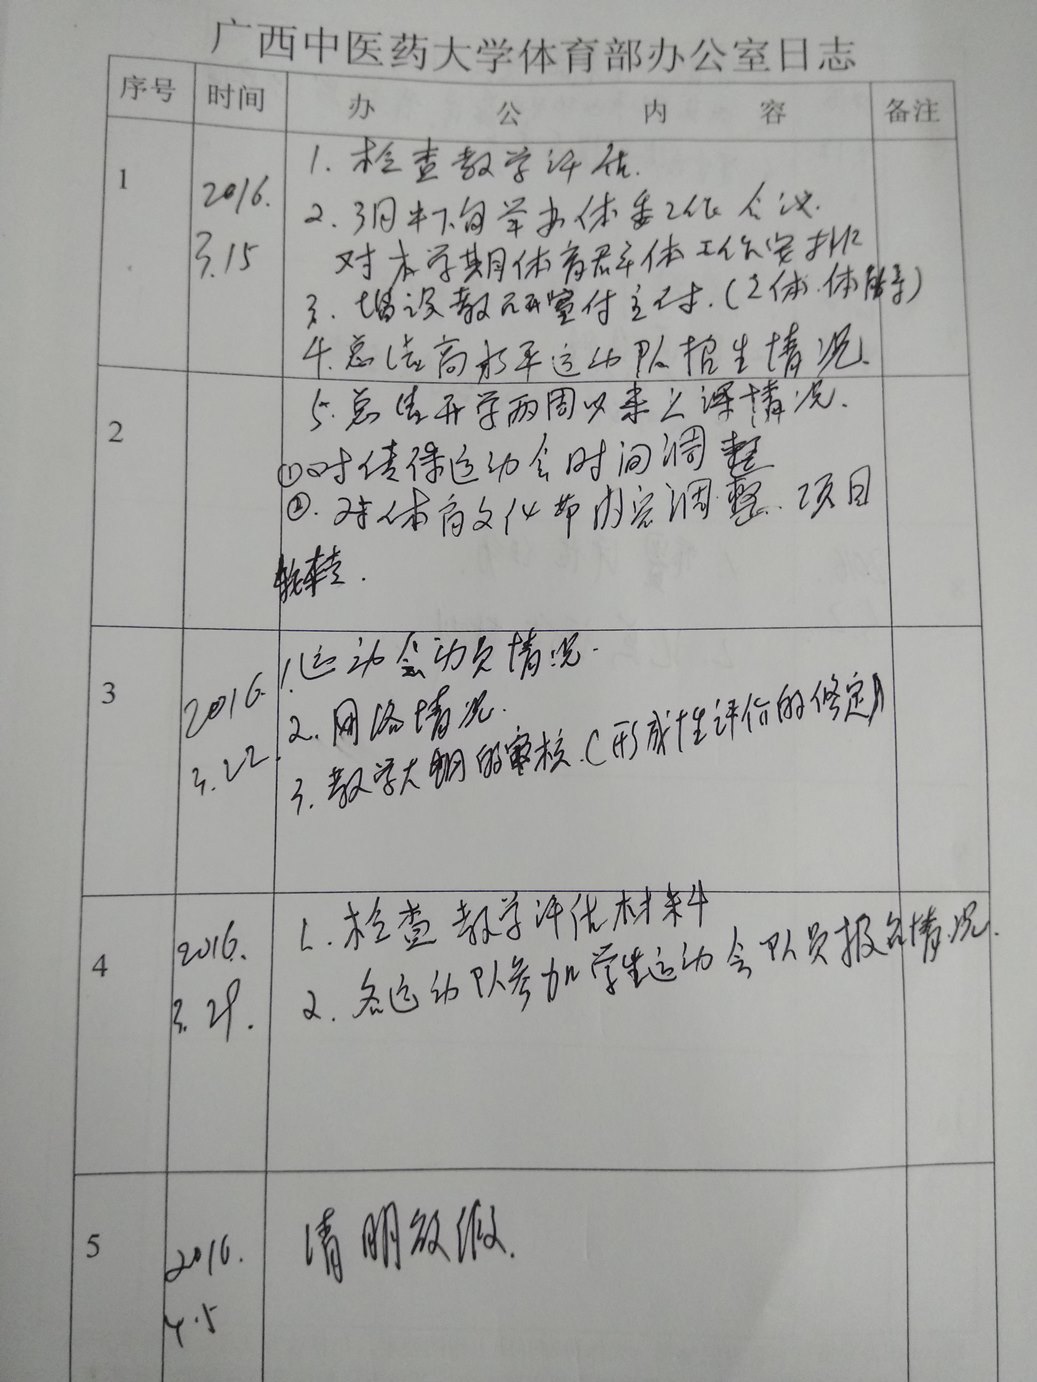 广西中医药大学体育部办公室日志
序号 时间 办公内容 备注
1 2016. 3.15
1. 检查教学评估.
2. 3月中下旬举办体委工作会议.
对本学期体育群体工作安排
3. 增设教研室付主任.(2体.体
4. 总结高水平运动队招生情况.
2
5. 总结开学两周以来上课情况.
①对健保运动会时间调整
②. 对体育文化节内容调整. 项目
.
3 2016. 3.22
1. 运动会动员情况.
2. 网络情况.
3. 教学大纲的审核.(形成性评价的修定)
4 2016. 3.29.
1. 检查教学评估材料
2. 各运动队参加学生运动会队员报名情况.
5 2016. 4.5
清明放假.